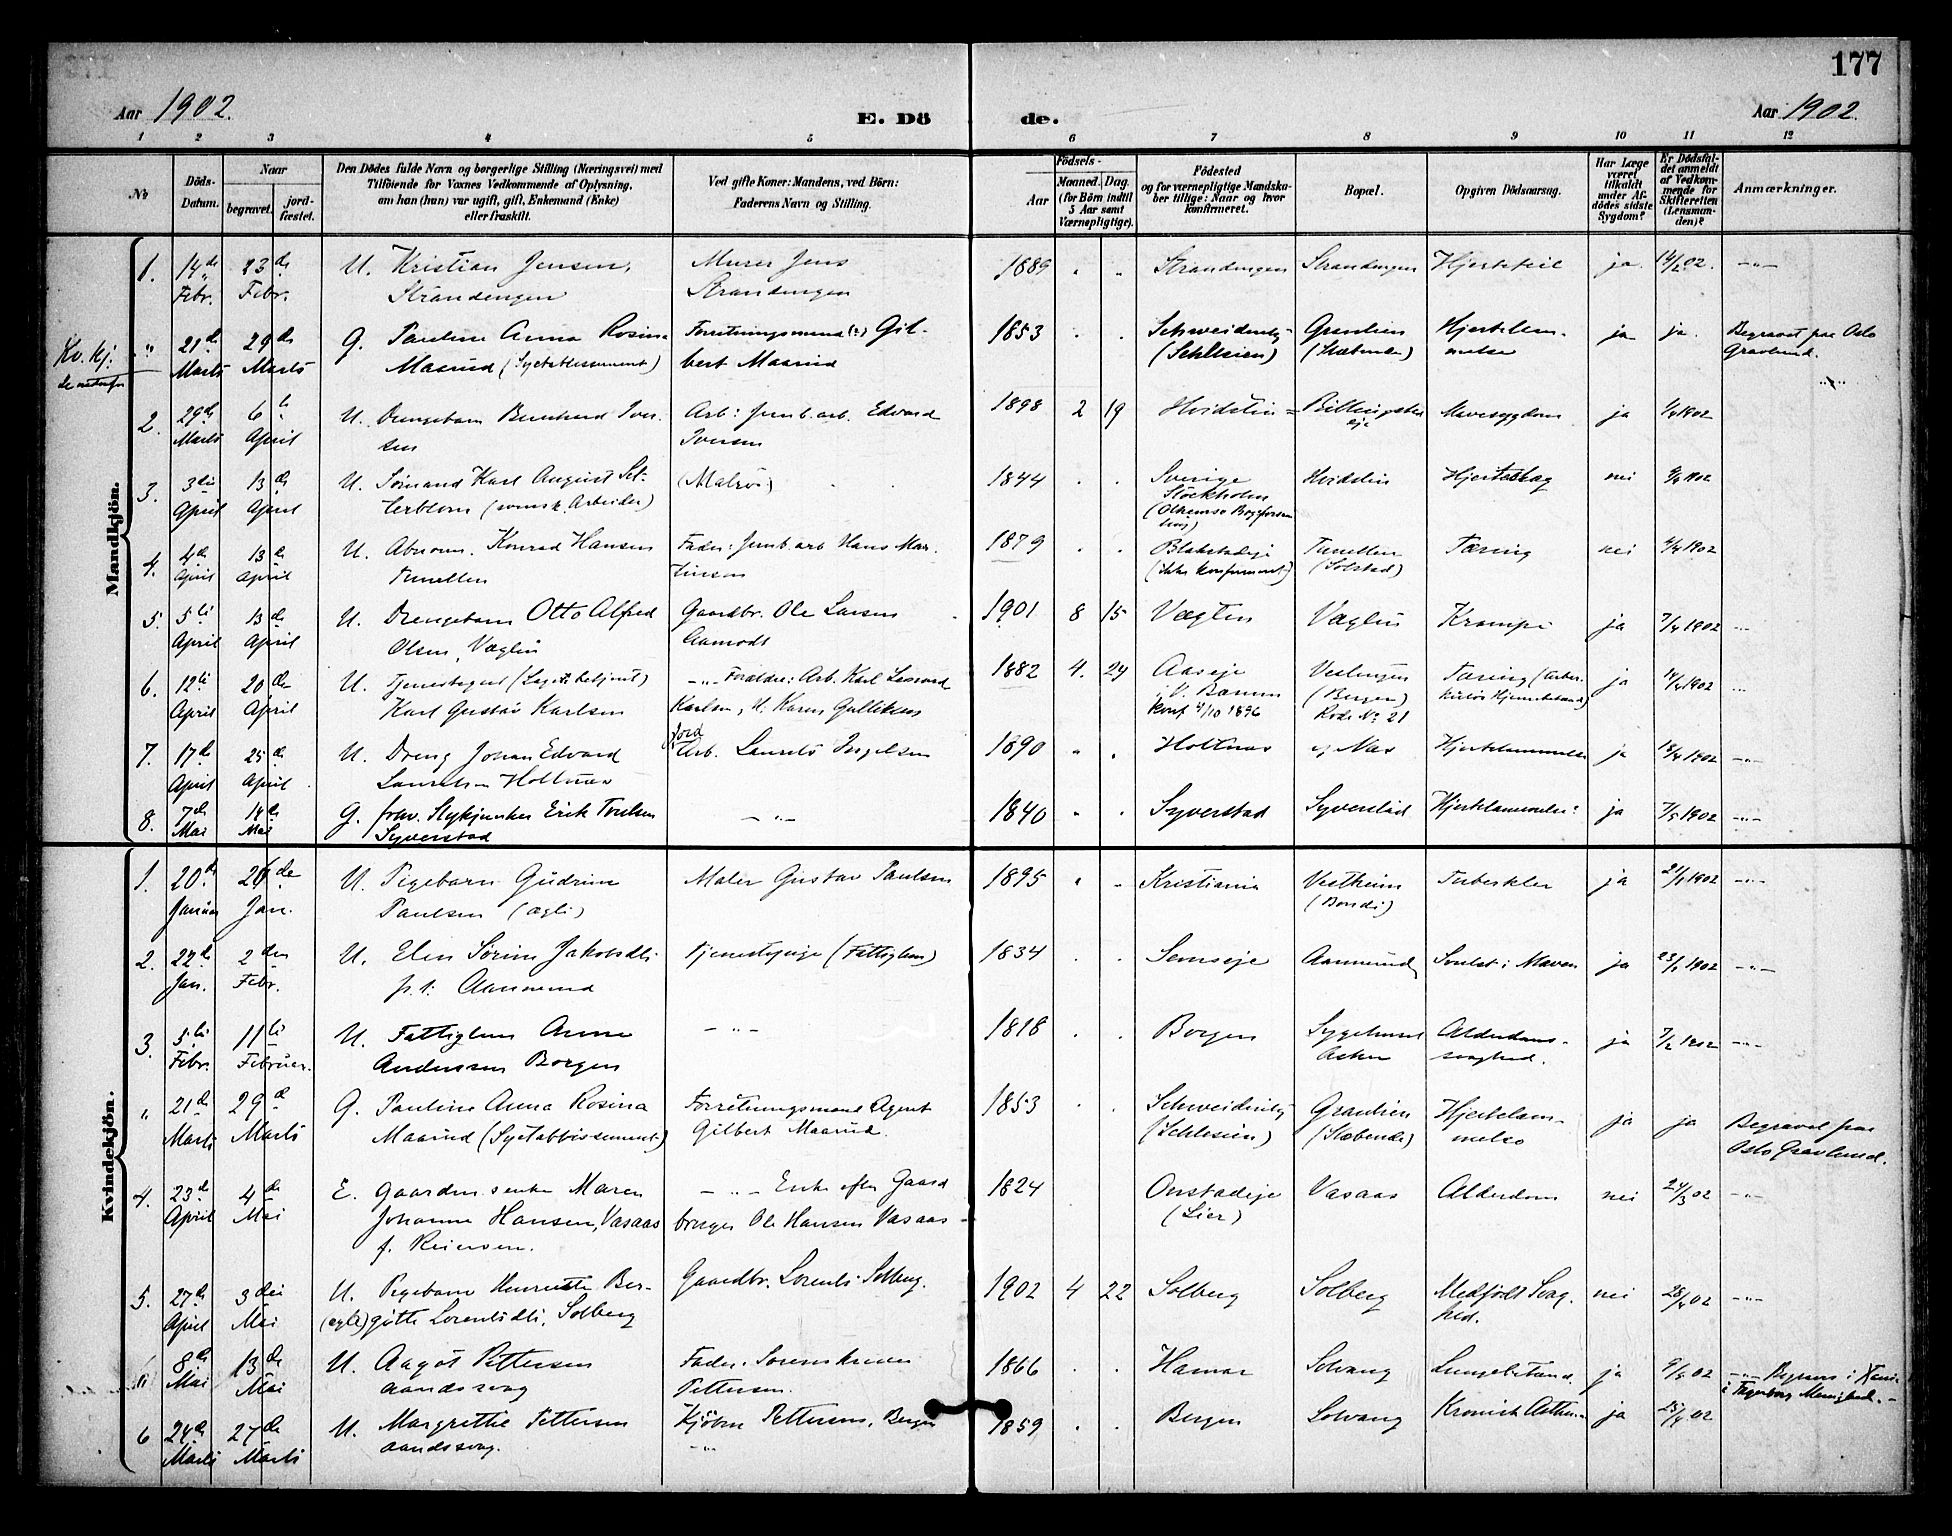 177
Aar 1902.
E. Dö de.
Aar 1902.
1 2 3 4 5 6 7 8 9 10 11 12
No
Döds-Datum.
Naar
begravet.
jord-fæstet.
Den Dödes fulde Navn og borgerlige Stilling (Næringsvei) med
Tilföiende for Voxnes Vedkommende af Oplysning,
om han (hun) var ugift, gift, Enkemand (Enke)
eller fraskilt.
Ved gifte Koner: Mandens, ved Börn:
Faderens Navn og Stilling.
Födsels-
Aar
Maaned. Dag.
(for Börn indtil
5 Aar samt
Værnepligtige).
Födested
og for værnepligtige Mandska-
ber tillige: Naar og hvor
konfirmeret.
Bopæl.
Opgiven Dödsaarsag.
Har Læge
været
tilkaldt
under Af-
dödes sidste
Sygdom?
Er Dödsfal-
det anmeldt
af Vedkom-
mende for
Skifteretten
(Lensman-
den)?
Anmærkninger.
Mandkjön.
1. 14de Febr. 23de Febr. U. Kristian Jensen, Murer Jens 1889 " " Strandengen Strandengen Hjertefeil ja. 14/2 02. —"—
Strandengen Strandengen
Kv. kj: " 21de Marts 29de Marts G. Pauline Anna Rosina Forretningsmand Gil- 1853 . . Schweidnitz Graulien Hjertelam- ja ja. Begravet paa Oslo
Maarud (Syetablissement) bert Maarud (Schlesien) (Slæbende) melse Gravlund.
2. 29de Marts 6te April U. Drengebarn Bernhard Iver- Arb: Jernb. arb. Edvard 1898 2 19 Hvidstin Billingstad Mavesygdom ja 1/4 1902
sen Iversen eje
3. 3die April 13de April U. Sömand Karl August Set- 1844 . . Sverige Hvidstin Hjerteslag nei 4/4 1902
terblom (svensk. Arbeider) Stockholm
4. 4de April 13de April U. Abnorm. Konrad Hansen Fader: Jernb. arb Hans Mar- 1879 . . Blakstadeje Tunellen Tæring nei 4/4 1902
Tunellen tinsen (ikke konfirmeret) (Solstad)
5. 5te April 13de April U. Drengebarn Otto Alfred Gaardbr. Ole Larsen 1901 8 15 Vægten Væglin Krampe ja 7/4 1902 "
Olsen, Væglin Aamodt
6. 12te April 20de April U. Forældre: Arb. Karl Leonard 1882 4. 24 Aaseje Tæring ja 14/4 1902 "
Karl Gustav Karlsen Karlsen, H. Karen Gulliksen V. Bærum (Bergen)
konf 4/10 1896 Rode No 21
7. 17de April 25de April U. Dreng Johan Edvard Jord Arb. Laurits Ingelsen 1890 " . Holtnæs Næs Hjertelammelse ja 18/4 1902 —"—
Lauritsen Holtnæs
8. 7de Mai 14de Mai G. forv. Stykjunker Erik Paulsen —"— 1840 " . Syverstad Syverstad Hjertelammelse ja 7/5 1902 —"—
Syverstad
Kvindekjön.
1. 20de Januar 26de Jan. U. Pigebarn Gudrun Maler Gustav Paulsen 1895 " - Kristiania Vestheim Tuberkler ja 21/1 1902 —"—
Paulsen (ægte) (Bondi)
2. 22de Jan. 2den Febr. U. Elen Sörine Jakobsdtr. Tjenestepige (Fattiglem) 1834 . . Semseje Aamund Svulst i Maven ja 23/1 1902 —"—
p. t. Aamund
3. 5te Febr. 11te Februar. U. Fattiglem Anne —"— 1818 . . Borgen Sygehuset Alderdoms- ja 7/2 1902 —"—
Anderssen Borgen Asker svaghed.
" 21de Marts 29de Marts G. Pauline Anna Rosina Forretningsmand Agent 1853 . . Schweidnitz Graulien Hjertelam- ja ja Begravet paa
Maarud (Syetablissement) Gilbert Maarud. (Schlesien) (Slæbende) melse Oslo Gravlund.
4. 23de April 4de Mai E. Gaardmandsenke Maren —"— Enke efter Gaard 1824 Onstadeje Vasaas Alderdom nei 24/3 02 —"—
Johanne Hansen, Vasaas bruger Ole Hansen Vasaas (Lier)
f. Reiersen.
5. 27de April 3die Mai U. Pigebarn Henriette Ber- Gaardbr. Lorents Solberg. 1902 4 22 Solberg Solberg Medfödt Svag- nei 28/4 02 —"—
(ægte) gitte Lorentsdtr, Solberg hed.
8de Mai 13de Mai U. Aagot Pettersen Fader. Sorenskriver 1866 . . Hamar Solvang Lungebetænd. ja 9/5 02 —"—
aandssvag Pettersen.
6 24de Marts 27de Marts U. Margrethe Pettersen Kjöbm Pettersen, Bergen 1859 . . Bergen Solvang Kronisk Asthma ja 25/4 02
aandssvag. —"—